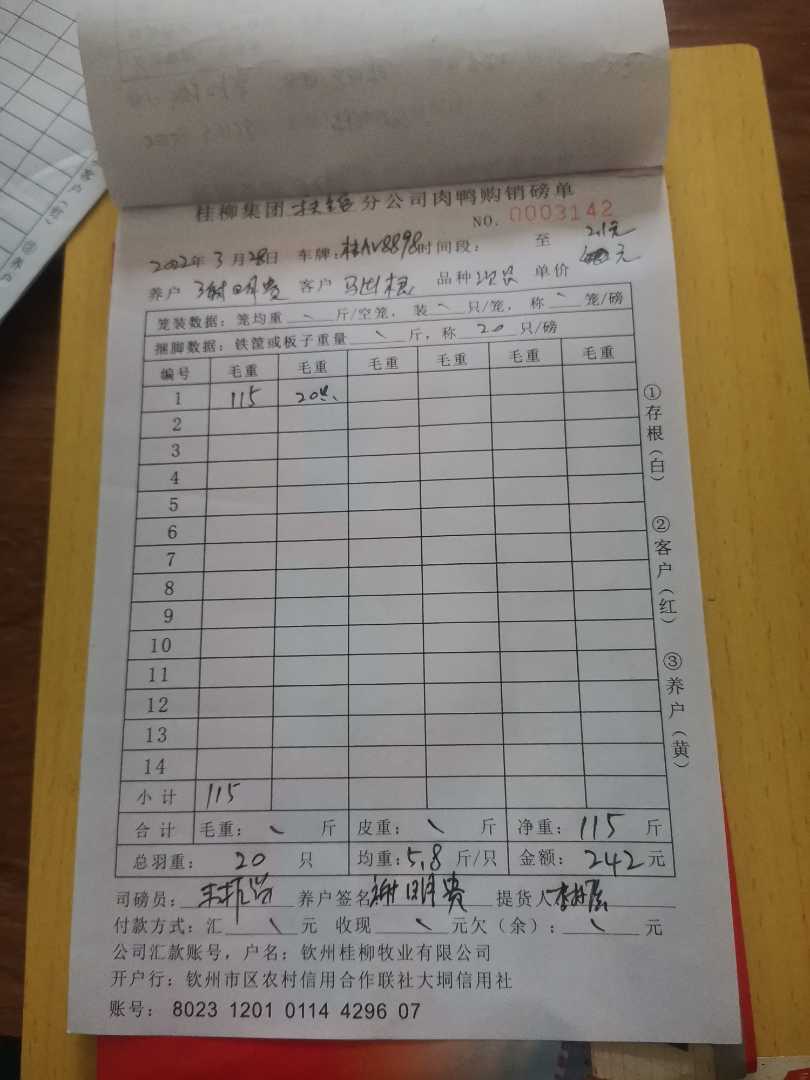 桂柳集团扶绥分公司肉鸭购销磅单
NO. 0003142
2022年3月28日 车牌:桂AV8898时间段: 至 2.1元
养户 谢明贵 客户 马出根 品种 次只 单价 元
笼装数据: 笼均重 \ 斤/空笼, 装 \ 只/笼, 称 \ 笼/磅
捆脚数据: 铁筐或板子重量 \ 斤, 称 20 只/磅
编号 毛重 毛重 毛重 毛重 毛重 毛重
1 115 20只
2
3
4
5
6
7
8
9
10
11
12
13
14
小计 115
合计 毛重: \ 斤 皮重: \ 斤 净重: 115 斤
总羽重: 20 只 均重: 5.8 斤/只 金额: 242元
司磅员: 养户签名 谢明贵 提货人
付款方式: 汇 \ 元 收现 \ 元欠(余): \ 元
公司汇款账号, 户名: 钦州桂柳牧业有限公司
开户行: 钦州市区农村信用合作联社大垌信用社
账号: 8023 1201 0114 4296 07
①存根(白)
②客户(红)
③养户(黄)
客户(红)
③养户